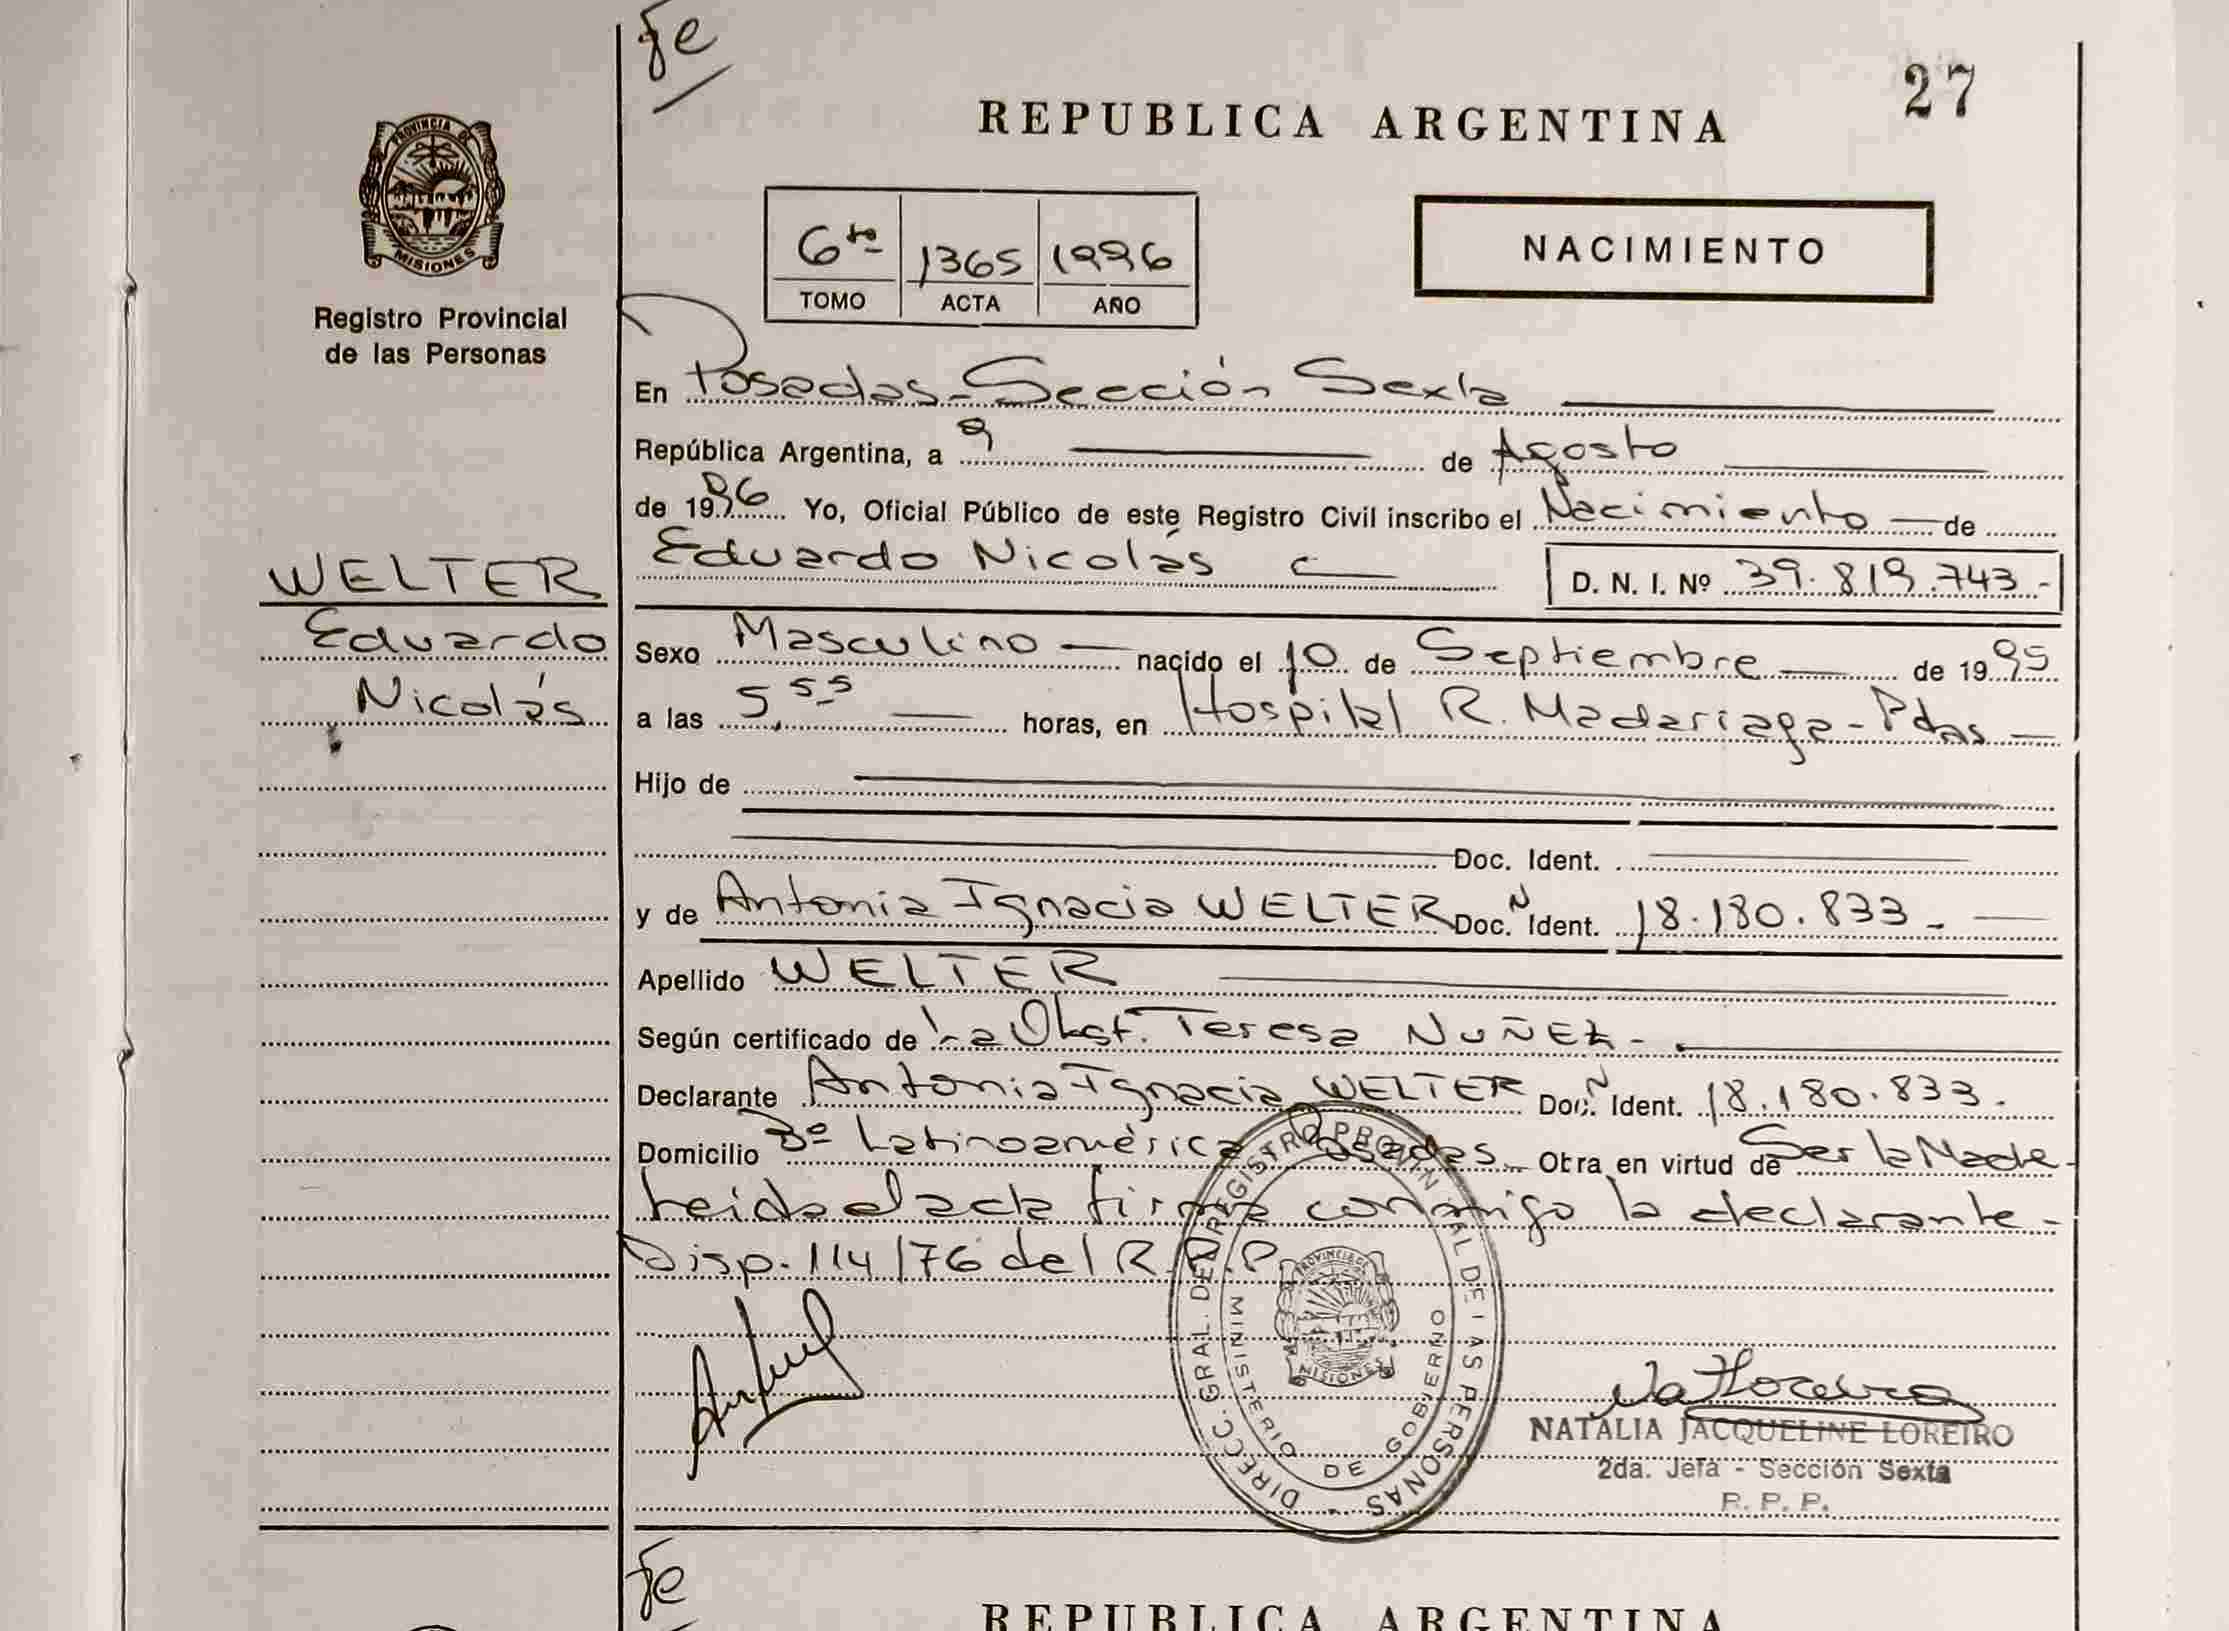 fe
27
REPUBLICA ARGENTINA
PROVINCIA DE
MISIONES
Registro Provincial
de las Personas
6to 1365 1996
TOMO ACTA AÑO
NACIMIENTO
En Posadas - Sección Sexta
República Argentina, a 9 de Agosto
de 1996 Yo, Oficial Público de este Registro Civil inscribo el Nacimiento de
WELTER
Eduardo
Nicolás
Eduardo Nicolás D. N. I. Nº 39.819.743.-
Sexo Masculino nacido el 10 de Septiembre de 1995
a las 5,55 horas, en Hospital R. Madariaga - Pdas
Hijo de
Doc. Ident.
y de Antonia Ignacia WELTER Doc. N Ident. 18.180.833.-
Apellido WELTER
Según certificado de La Obst. Teresa NUÑEZ -.
Declarante Antonia Ignacia WELTER Doc. N Ident. 18.180.833.
Domicilio Bº Latinoamérica Posadas Otra en virtud de Ser la Madre -
Leida el acta firma conmigo la declarante -
Disp. 114/76 del R.P.P.
DIRECC. GRAL. DEL REGISTRO PROVINCIAL DE LAS PERSONAS -
MINISTERIO DE GOBIERNO
PROVINCIA DE
MISIONES
NATALIA JACQUELINE LOREIRO
2da. Jefa - Sección Sexta
R. P. P.
fe
REPUBLICA ARGENTINA